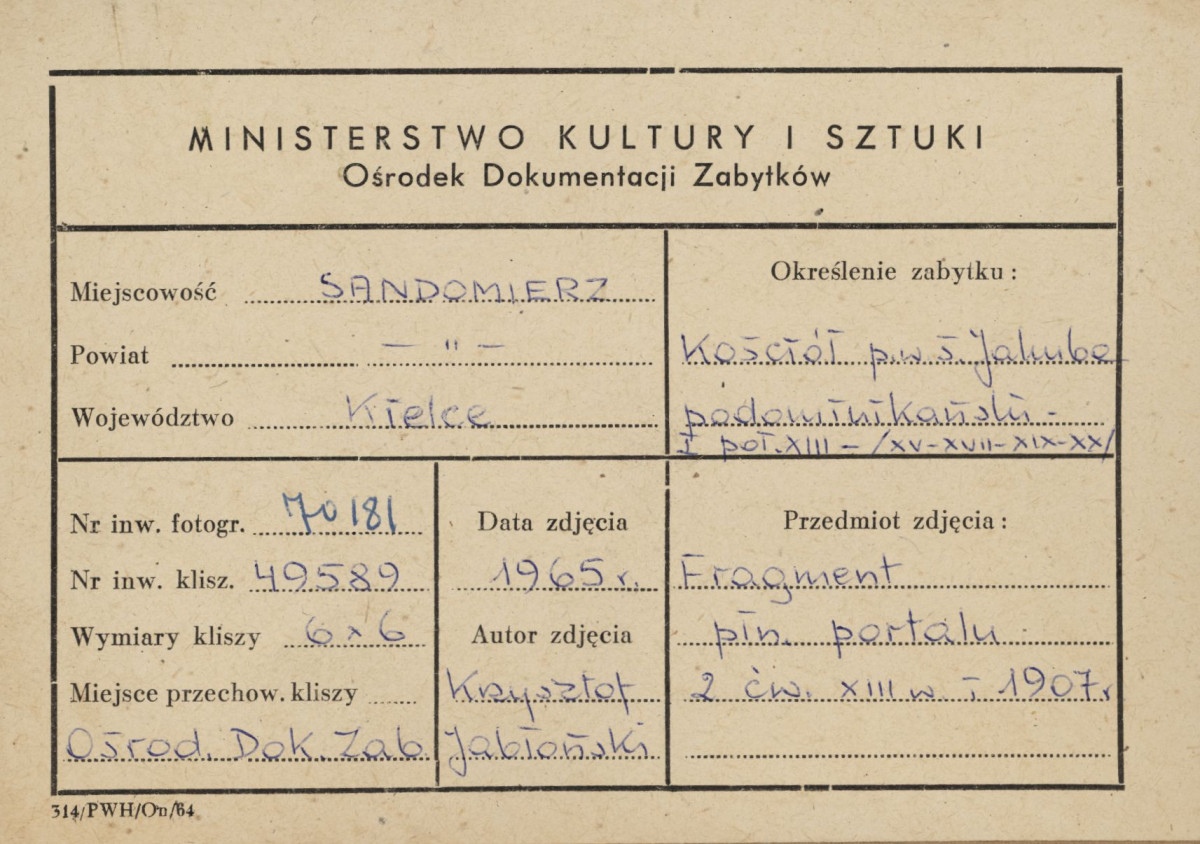 MINISTERSTWO KULTURY I SZTUKI
Ośrodek Dokumentacji Zabytków
Miejscowość SANDOMIERZ
Powiat — " —
Województwo Kielce
Określenie zabytku:
Kościół p.w ś. Jakuba
podominikański -
I poł. XIII - /XV-XVII-XIX-XX/
Nr inw. fotogr. 70181
Nr inw. klisz. 49589
Wymiary kliszy 6x6
Miejsce przechow. kliszy
Ośrod. Dok. Zab
Data zdjęcia
1965 r.
Autor zdjęcia
Krzysztof
Jabłoński
Przedmiot zdjęcia:
Fragment
płn. portalu
2 ćw. XIII w. i 1907r
314/PWH/On/64